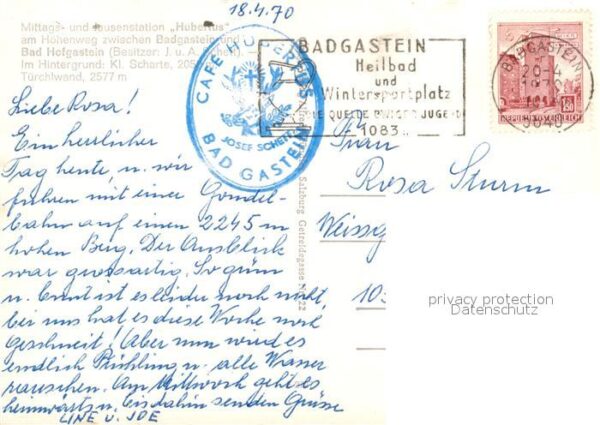 18.4.70
Mittags- und Jausenstation „Hubertus"
am Höhenweg zwischen Badgastein und
Bad Hofgastein (Besitzer: J. u. A.
Im Hintergrund: Kl. Scharte, 205
Türchlwand, 2577 m
CAFE HUBERTUS
JOSEF
BAD GASTEIN
BADGASTEIN
Heilbad
und
Wintersportplatz
DIE QUELLE EWIGER JUGEND
1083 m
BADGASTEIN
20-4
1970
5640
REPUBLIK ÖSTERREICH
1.50
Liebe Rosa!
Ein herrlicher
Tag heute, u. wir
fuhren mit einer Gondel-
bahn auf einen 2245 m
hohen Berg. Der Ausblick
war grossartig. So grün
u. bunt ist es leider noch nicht,
bei uns hat es diese Woche noch
geschneit! Aber nun wird es
endlich Frühling u. alle Wasser
rauschen. Am Mittwoch geht es
heimwärts u. bis dahin senden Grüsse
LINE u. JOE
Rosa Sturm
Weissg
10
Salzburg, Getreidegasse 22
privacy protection
Datenschutz